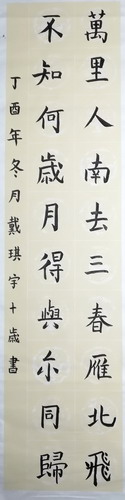 萬里人南去三春雁北飛
不知何歲月得與尒同歸
丁酉年冬月戴琪宇十歲書